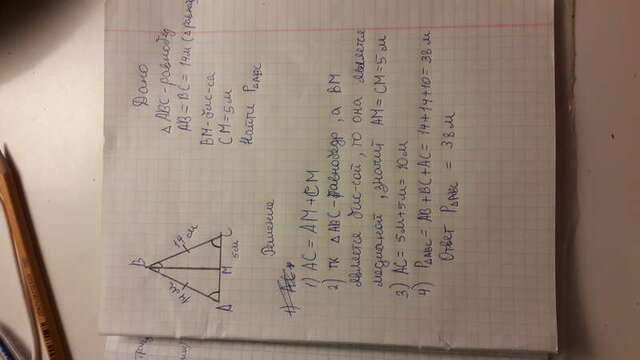 B
14м
14м
A
M
C
5м
Дано
△ABC-равнобед
AB=BC=14м
BM-бис-са
CM=5м
Найти P△ABC
Решение
1) AC=
1) AC = AM+CM
2) тк △ABC-равнобедр, а BM
является бис-сой, то она является
медианой, значит AM=CM=5м
3) AC= 5м+5м=10м
4) P△ABC= AB+BC+AC= 14+14+10=38м
Ответ P△ABC = 38м